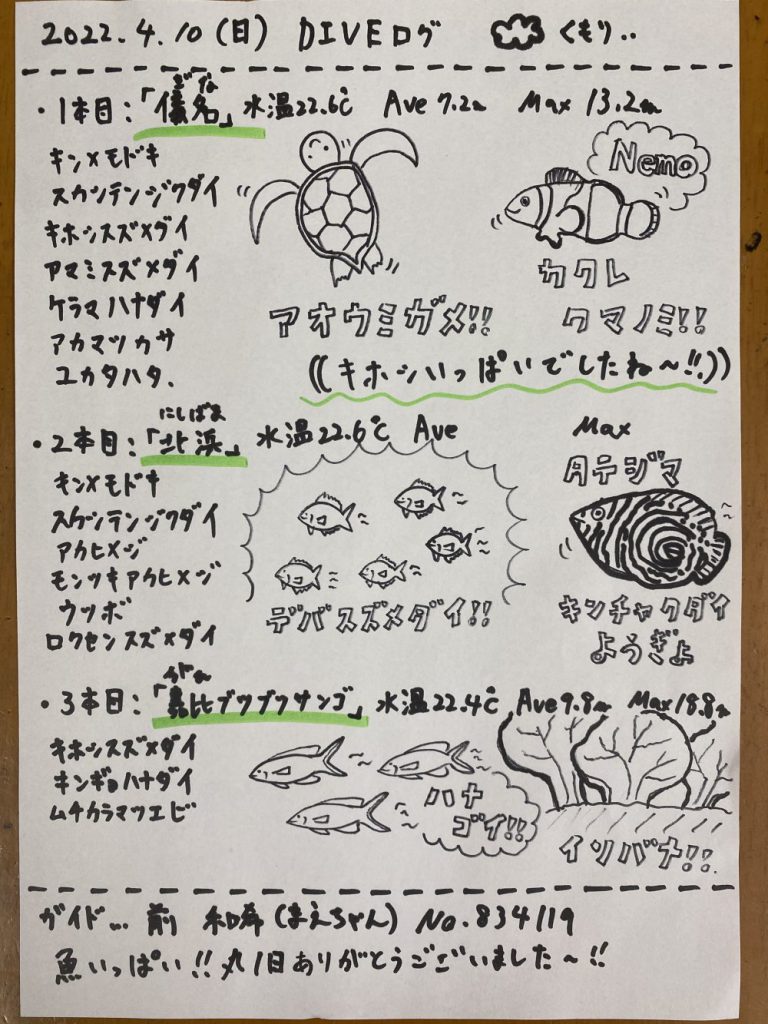 2022.4.10(日) DIVEログ くもり..
ぎな
・1本目:「儀名」水温22.6℃ Ave 7.2m Max 13.2m
キンメモドキ
スカシテンジクダイ
キホシスズメダイ
アマミスズメダイ
ケラマハナダイ
アカマツカサ
ユカタハタ.
アオウミガメ!!
Nemo
カクレ
クマノミ!!
((キホシいっぱいでしたね〜!!))
にしばま
・2本目:「北浜」水温22.6℃ Ave Max
キンメモドキ
スカシテンジクダイ
アカヒメジ
モンツキアカヒメジ
ウツボ
ロクセンスズメダイ
デバスズメダイ!!
タテジマ
キンチャクダイ
ようぎょ
・3本目:「嘉比ブツブツサンゴ」水温22.4℃ Ave 9.8m Max 18.8m
キホシスズメダイ
キンギョハナダイ
ムチカラマツエビ
ハナ
ゴイ!!
イソバナ!!.
ガイド... 前 和希(まえちゃん) No.834119
魚いっぱい!!丸1日ありがとうございました〜!!